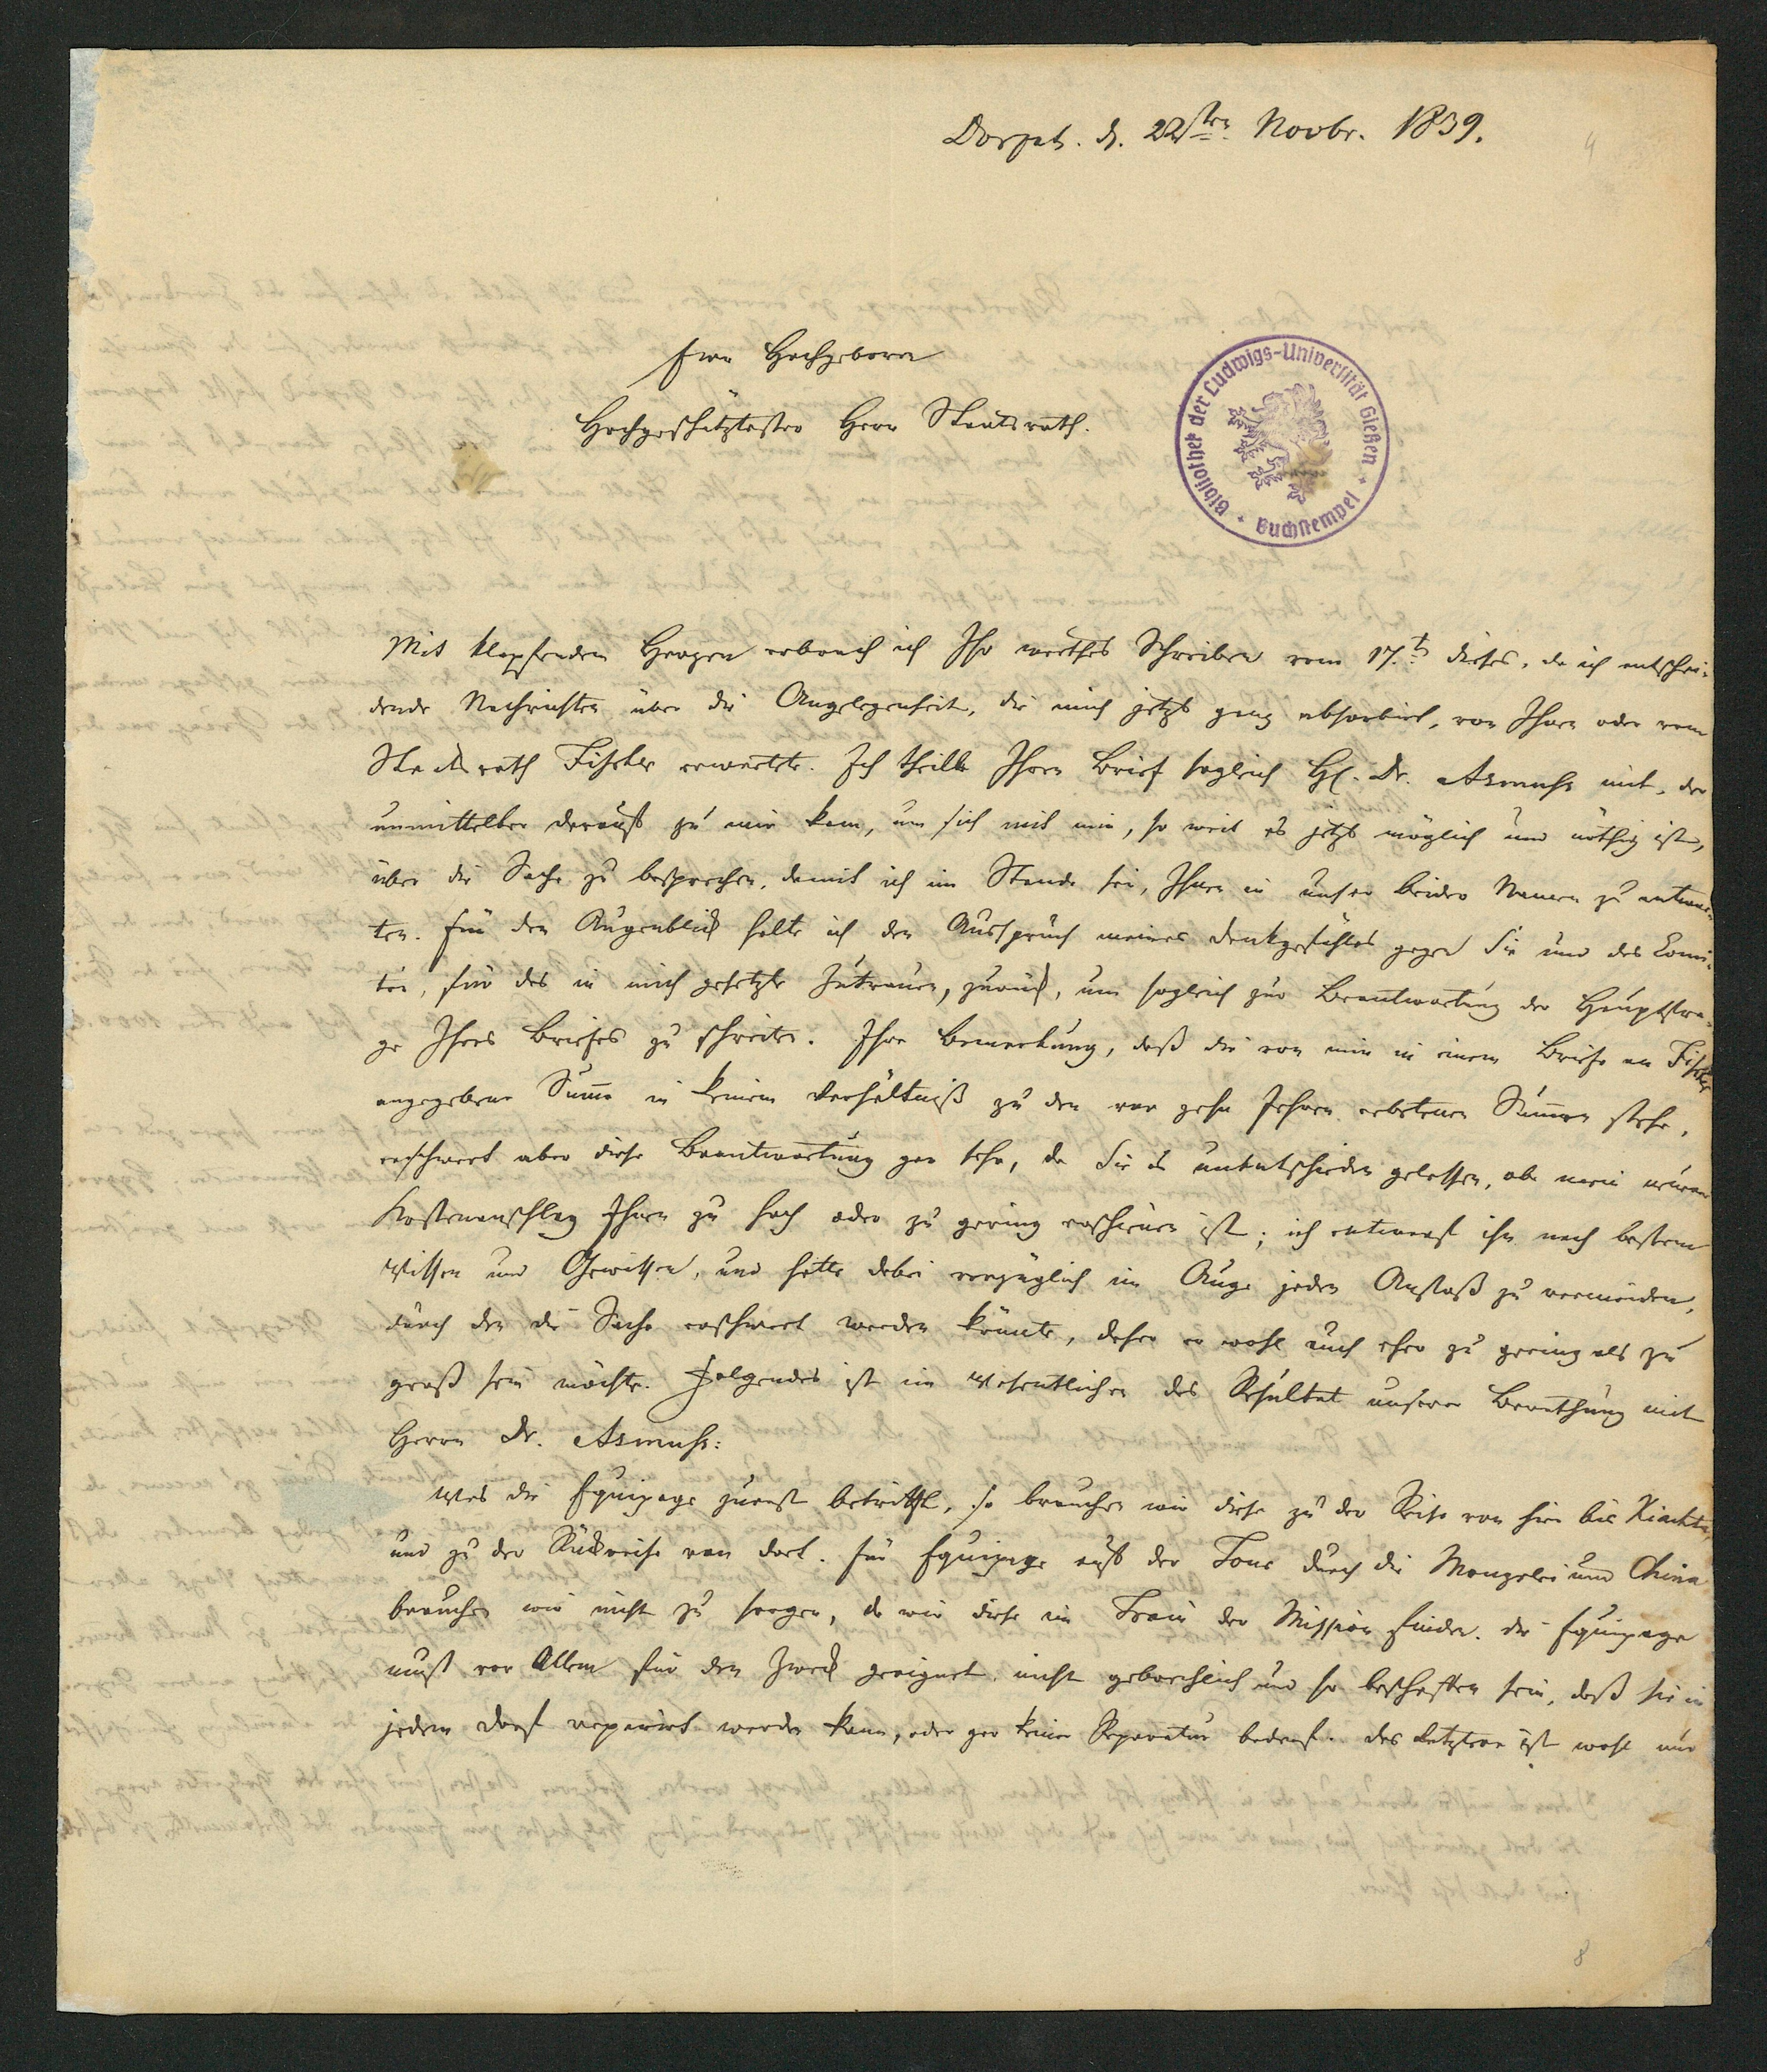 Dorpat. d. 22sten Novbr. 1839.
4
Euer Hochgeboren
Hochgeschätztester Herr Staatsrath.
Bibliothek der Ludwigs-Universität Gießen + Buchstempel +
Mit klopfendem Herzen erbrach ich Ihr werthes Schreiben vom 17.t dieses, da ich entschei-
dende Nachrichten über die Angelegenheit, die mich jetzt ganz absorbirt, von Ihnen oder vom
Staatsrath Fischer erwartete. Ich theilte Ihren Brief sogleich H. Dr. Asmuss mit, der
unmittelbar darauf zu mir kam, um sich mit mir, so weit es jetzt möglich und nöthig ist,
über die Sache zu besprechen, damit ich im Stande sei, Ihnen in unser beider Namen zu antwor-
ten. Für den Augenblick halte ich den Ausspruch meines Dankgefühles gegen Sie und das Comi-
tée, für das in mich gesetzte Zutrauen, zurück, um sogleich zur Beantwortung der Hauptfra-
ge Ihres Briefes zu schreiten. Ihre Bemerkung, daß die von mir in einem Briefe an Fischer
angegebene Summe in keinem Verhältniß zu den vor zehn Jahren erbetenen Summen stehe,
erschwert aber diese Beantwortung gar sehr, da Sie es unentschieden gelassen, ob mein neuer
Kostenanschlag Ihnen zu hoch oder zu gering erschienen ist; ich entwarf ihn nach bestem
Wissen und Gewissen, und hatte dabei vorzüglich im Auge jeden Anstoß zu vermeiden,
durch den die Sache erschwert werden könnte, daher er wohl auch eher zu gering als zu
groß sein möchte. Folgendes ist im Wesentlichen das Resultat unserer Berathung mit
Herrn Dr. Asmuss:
Was die Equipage zuerst betrifft, so brauchen wir diese zu der Reise von hier bis Kiachta,
und zu der Rückreise von dort. Für Equipage auf der Tour durch die Mongolei und China
brauchen wir nicht zu sorgen, da wir diese im Train der Mission finden. Die Equipage
muß vor Allem für den Zweck geeignet, nicht gebrechlich und so beschaffen sein, daß sie in
jedem Dorf reparirt werden kann, oder gar keiner Reparatur bedarf. Das Letztere ist wohl nur
8